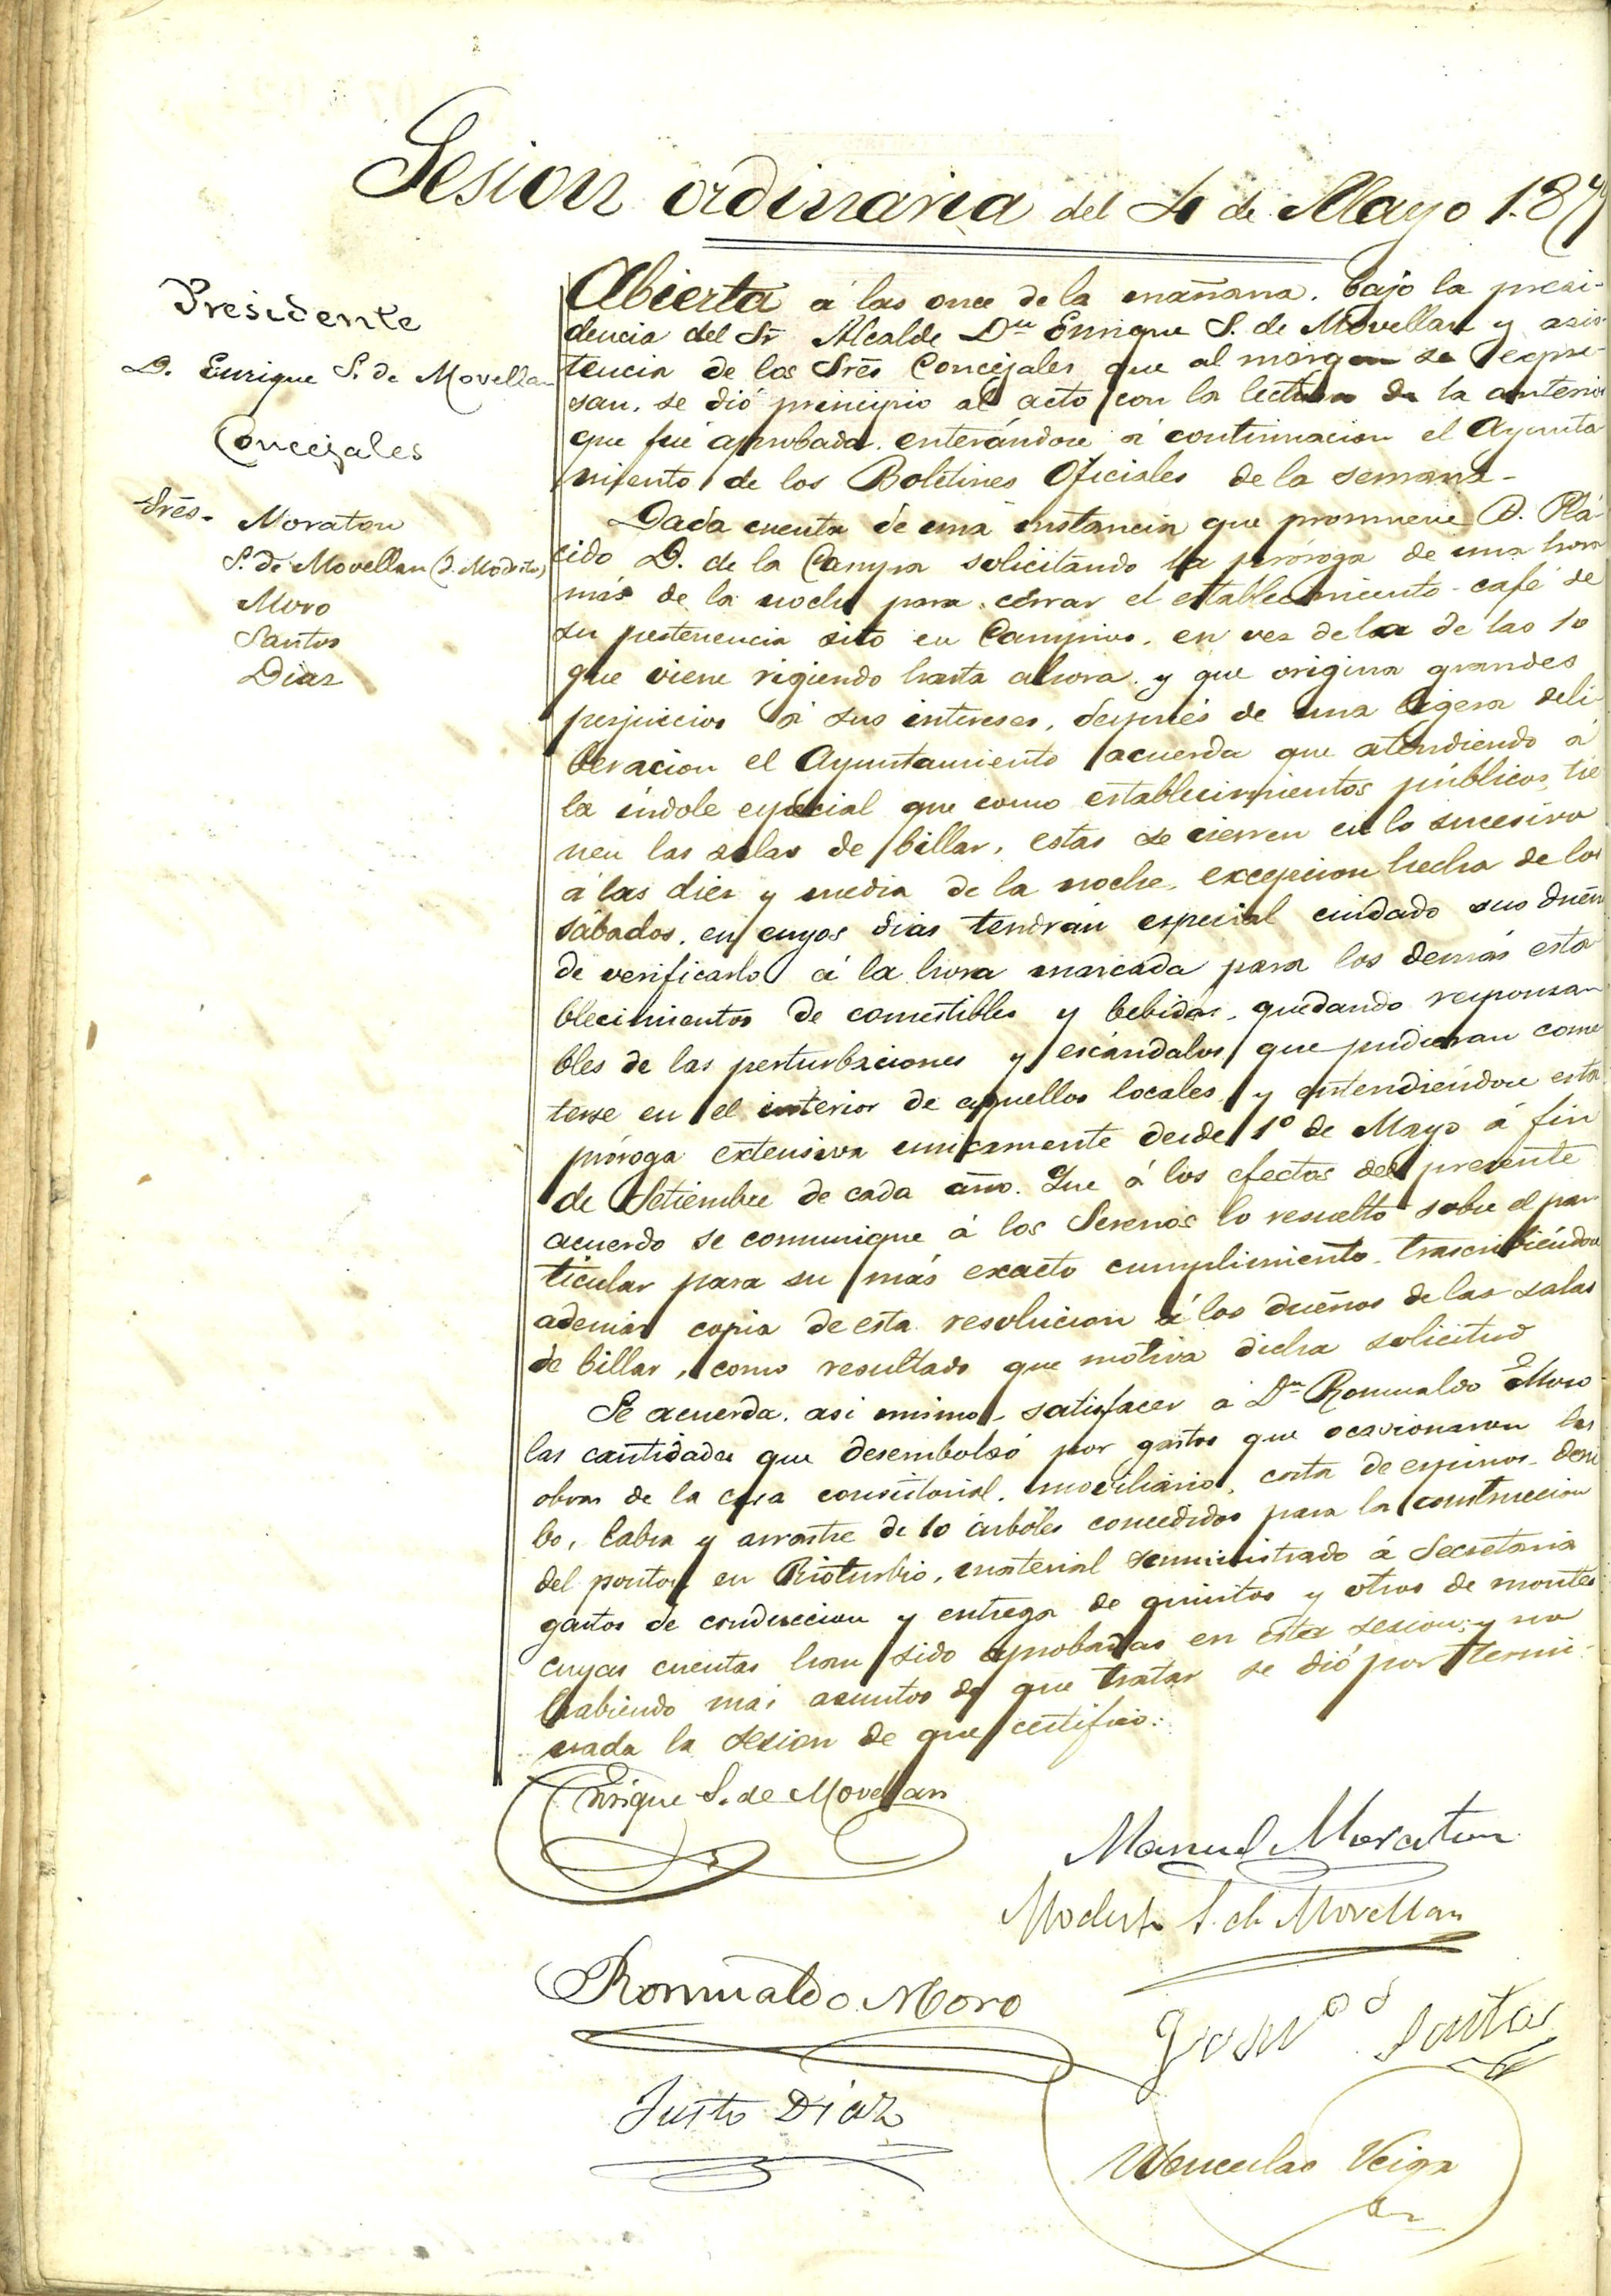 Sesion ordinaria del 4 de Mayo 187
Presidente
D. Enrique S. de Movellan
Concejales
Sres. Moraton
S. de Movellan (D. Modesto)
Moro
Santos
Diaz
Abierta á las once de la mañana, bajo la presi-
dencia del Sr Alcalde Dn Enrique S. de Movellan y asis-
tencia de los Sres Concejales que al margen se expre-
san, se dió principio al acto con la lectura de la anterior
que fué aprobada, enterándose á continuacion el Ayunta
miento de los Boletines Oficiales de la semana-
Dada cuenta de una instancia que promueve D. Plá-
cido D. de la Campa solicitando la próroga de una hora
más de la noche para cerrar el establecimiento-café de
su pertenencia sito en Campios, en vez de la de las 10
que viene rigiendo hasta ahora, y que origina grandes
perjuicios á sus intereses, después de una ligera deli
beracion el Ayuntamiento acuerda que atendiendo á
la índole especial que como establecimientos públicos tie
nen las salas de billar, estas se cierren en lo sucesivo
á las diez y media de la noche, excepcion hecha de los
sábados, en cuyos dias tendrán especial cuidado sus dueños
de verificarlo á la hora marcada para los demás esta
blecimientos de comestibles y bebidas, quedando responsa
bles de las perturbaciones y escándalos que pudieran come
terse en el interior de aquellos locales, y entendiéndose esta
próroga extensiva unicamente desde 1º de Mayo á fin
de Setiembre de cada año. Que á los efectos del presente
acuerdo se comunique á los Serenos lo resuelto sobre el par
ticular para su más exacto cumplimiento, trascribiéndose
además copia de esta resolucion á los dueños de las salas
de billar, como resultado que motiva dicha solicitud
Se acuerda, asi mismo, satisfacer á Dn Romualdo Moro
las cantidades que desembolsó por gastos que ocasionaron las
obras de la casa consistorial, moviliario, corta de espinos, derri
bo, labra y arrastre de 10 árboles concedidos para la construccion
del ponton en Rioturbio, material suministrado á Secretaria
gastos de conduccion y entrega de quintos y otros de montes
cuyas cuentas han sido aprobadas en esta sesion; y no
habiendo más asuntos de que tratar se dió por termi-
nada la sesion de que certifico:
Enrique S. de Movellan
Manuel Moraton
Modesto S. de Movellan
Romualdo Moro
Santos
Justo Diaz
Wenceslao Veiga